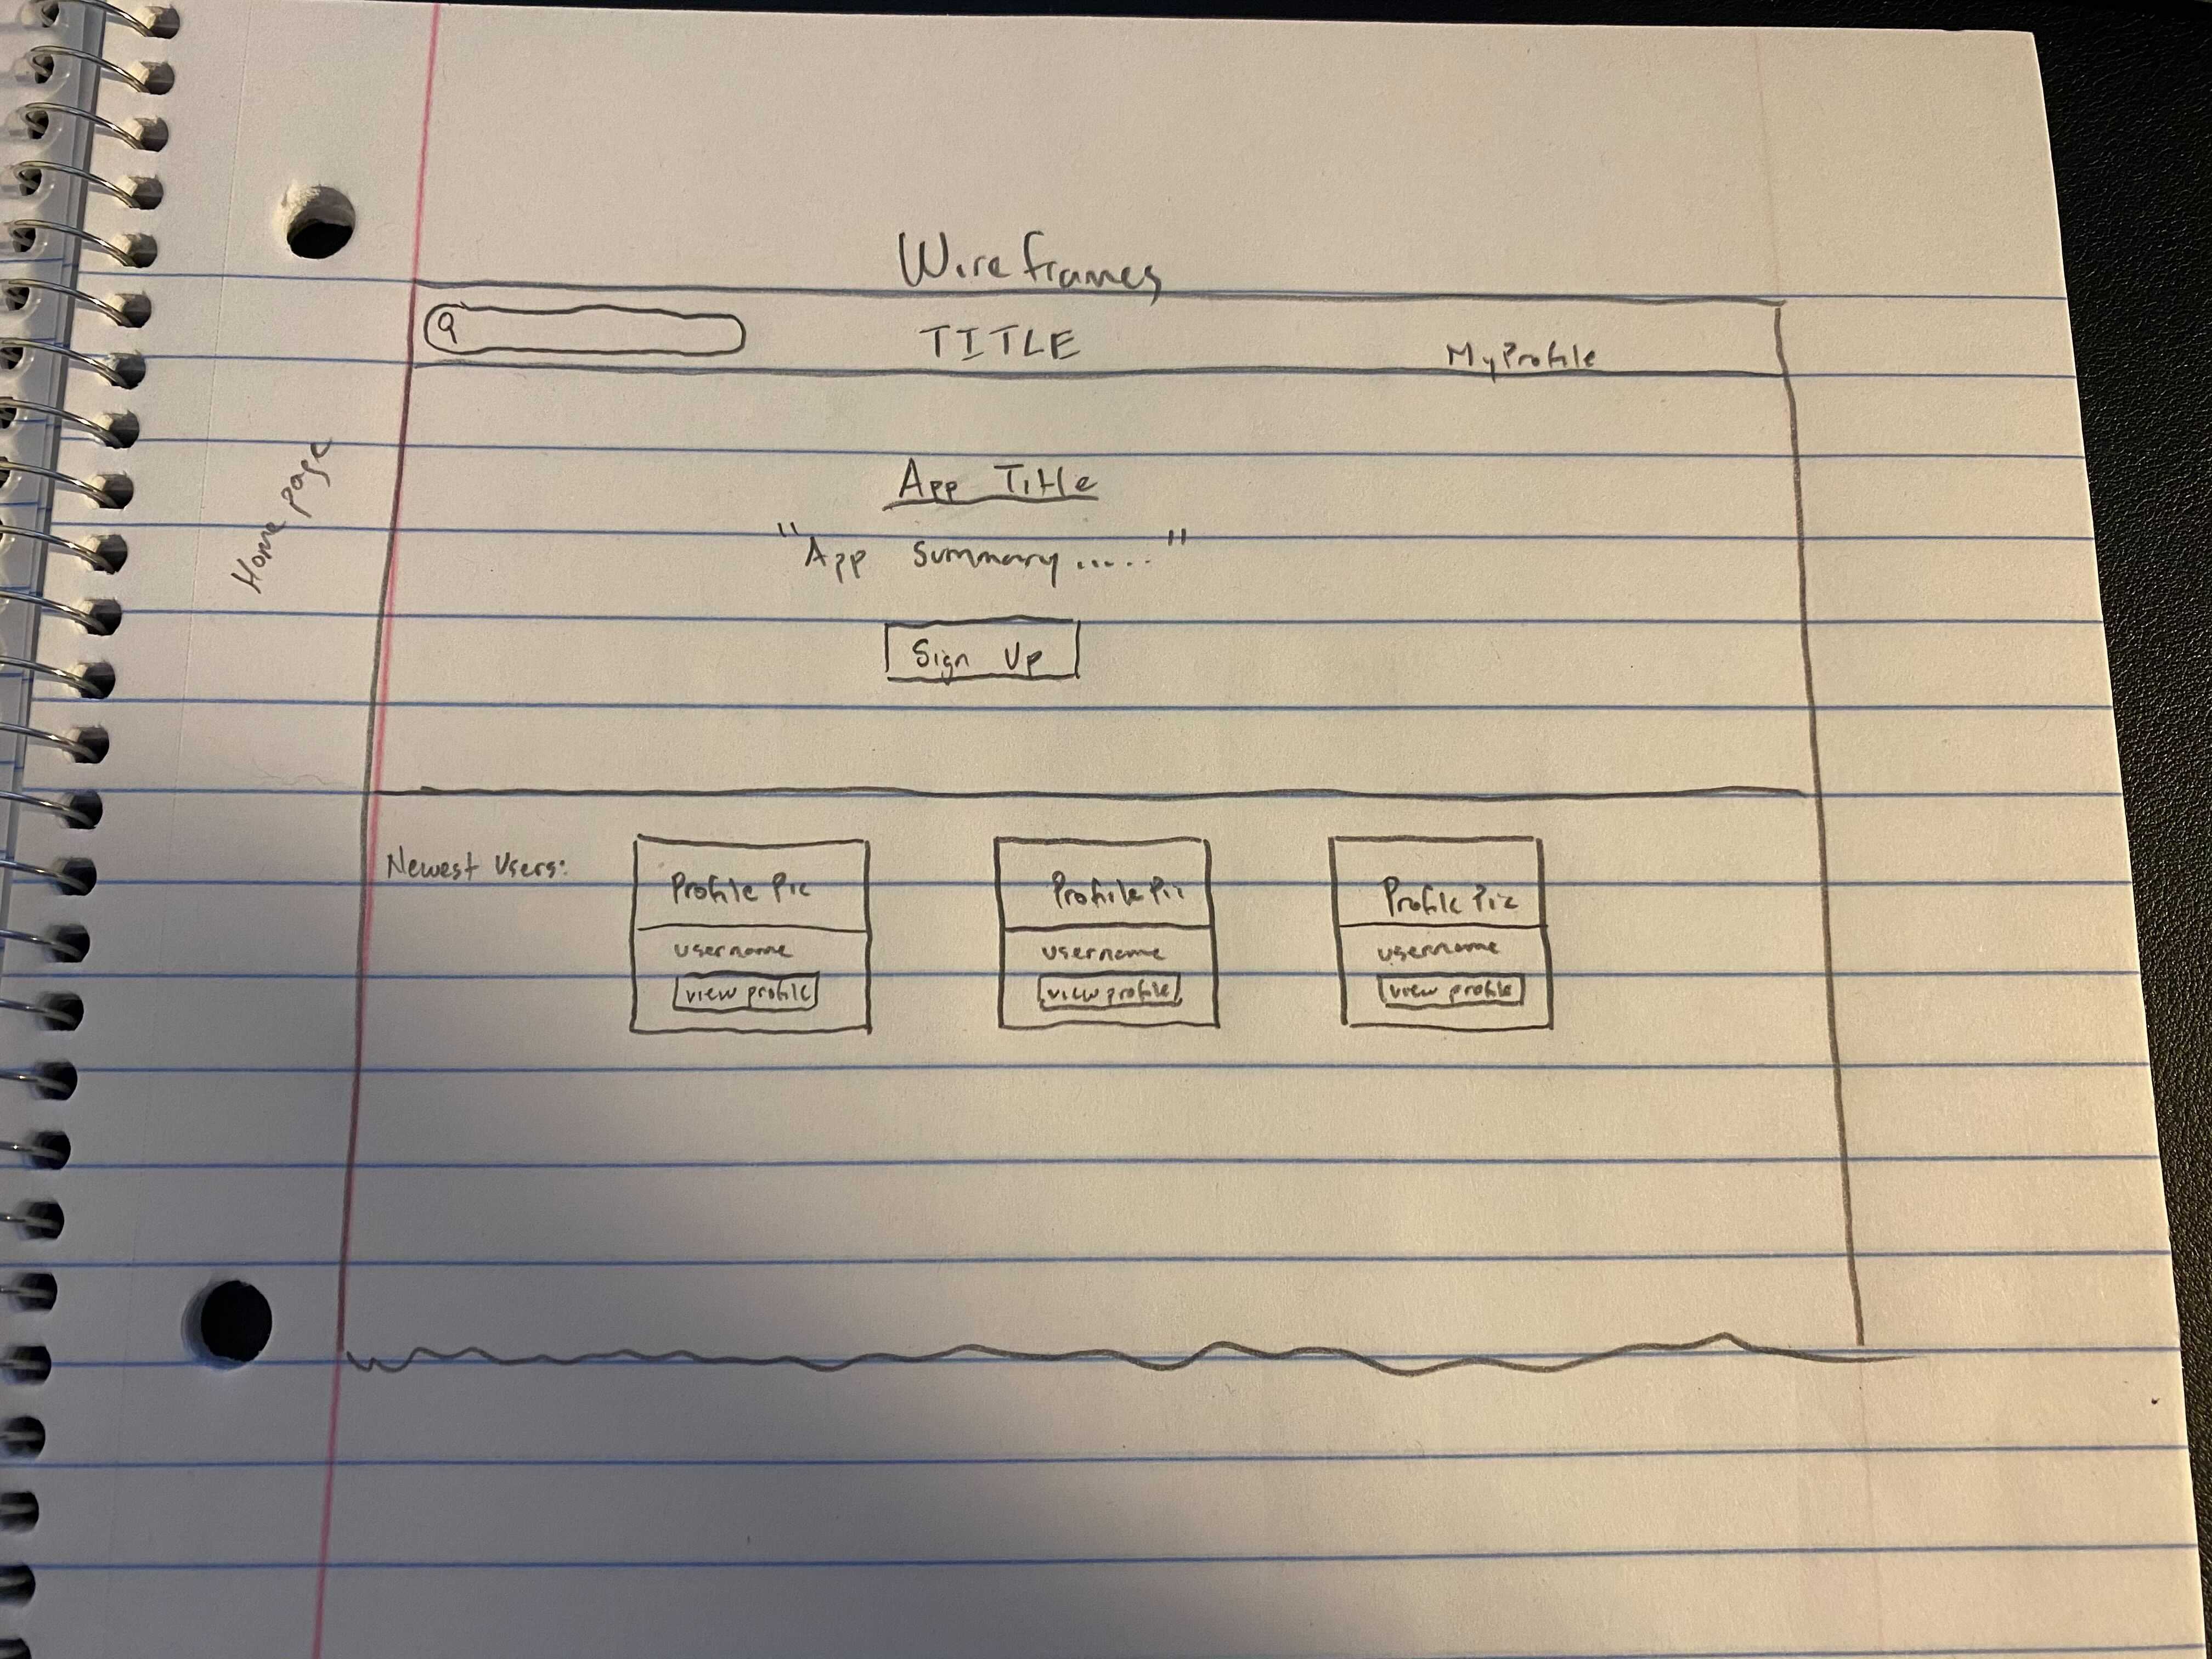 Wireframes
TITLE
MyProfile
Home page
App Title
"App summary....."
Sign Up
Newest Users:
Profile Pic
username
view profile
Profile Pic
username
view profile
Profile Pic
username
view profile